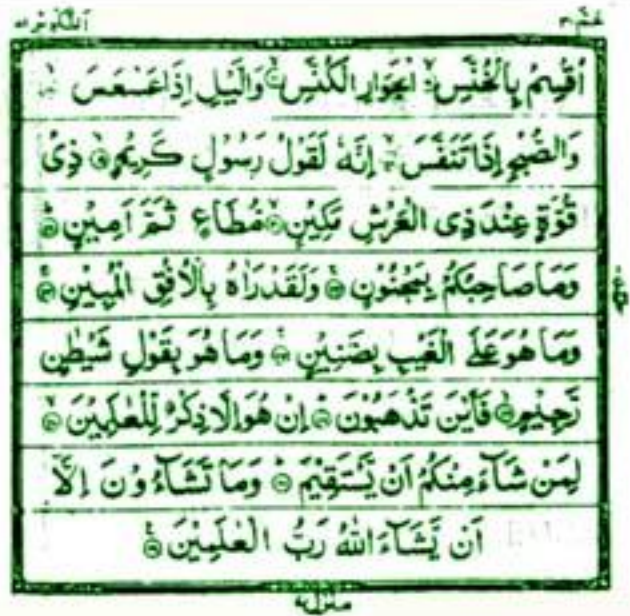 عمّ ٣٠
التكوير ٨١
اُقْسِمُ بِالْخُنَّسِ ۙ الْجَوَارِ الْكُنَّسِ ۙ وَالَّيْلِ اِذَا عَسْعَسَ ۙ
وَالصُّبْحِ اِذَا تَنَفَّسَ ۙ اِنَّهٗ لَقَوْلُ رَسُوْلٍ كَرِيْمٍ ۙ ذِىْ
قُوَّةٍ عِنْدَ ذِى الْعَرْشِ مَكِيْنٍ ۙ مُّطَاعٍ ثَمَّ اَمِيْنٍ ؕ
وَمَا صَاحِبُكُمْ بِمَجْنُوْنٍ ۚ وَلَقَدْ رَاٰهُ بِالْاُفُقِ الْمُبِيْنِ ۚ
وَمَا هُوَ عَلَى الْغَيْبِ بِضَنِيْنٍ ۚ وَمَا هُوَ بِقَوْلِ شَيْطٰنٍ
رَّجِيْمٍ ۙ فَاَيْنَ تَذْهَبُوْنَ ؕ اِنْ هُوَ اِلَّا ذِكْرٌ لِّلْعٰلَمِيْنَ ۙ
لِمَنْ شَآءَ مِنْكُمْ اَنْ يَّسْتَقِيْمَ ؕ وَمَا تَشَآءُوْنَ اِلَّاۤ
اَنْ يَّشَآءَ اللّٰهُ رَبُّ الْعٰلَمِيْنَ ۧ
منزل ٧